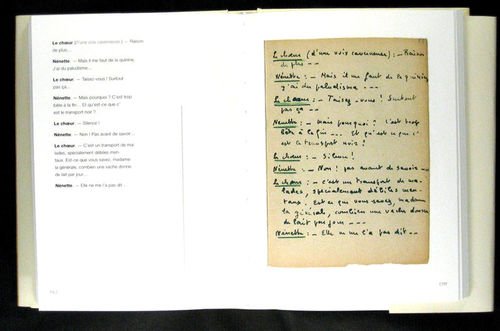 Le chœur (d'une voix caverneuse). – Raison
de plus...
Nénette. – Mais il me faut de la quinine,
J'ai du paludisme...
Le chœur. – Taisez-vous ! Surtout
pas ça...
Nénette. – Mais pourquoi ? C'est trop
bête à la fin... Et qu'est ce que c'
est le transport noir ?
Le chœur. – Silence !
Nénette. – Non ! Pas avant de savoir...
Le chœur. – C'est un transport de ma-
lades, spécialement débiles men-
taux. Est-ce que vous savez, madame
la générale, combien une vache donne
de lait par jour...
Nénette. – Elle ne me l'a pas dit...
Le chœur (d'une voix caverneuse) : – Raison
de plus ---
Nénette : – Mais il me faut de la quinine,
j'ai du paludisme ---
Le chœur : – Taisez-vous ! Surtout
pas ça ---
Nénette : – Mais pourquoi ? C'est trop
bête à la fin --- Et qu'est ce que c'
est le transport noir ?
Le chœur : – Silence !
Nénette : – Non ! pas avant de savoir ---
Le chœur : – c'est un transport de ma-
lades, spécialement débiles men-
taux. Est ce que vous savez, madame
la générale, combien une vache donne
de lait par jour ---
Nénette : – Elle ne me l'a pas dit --